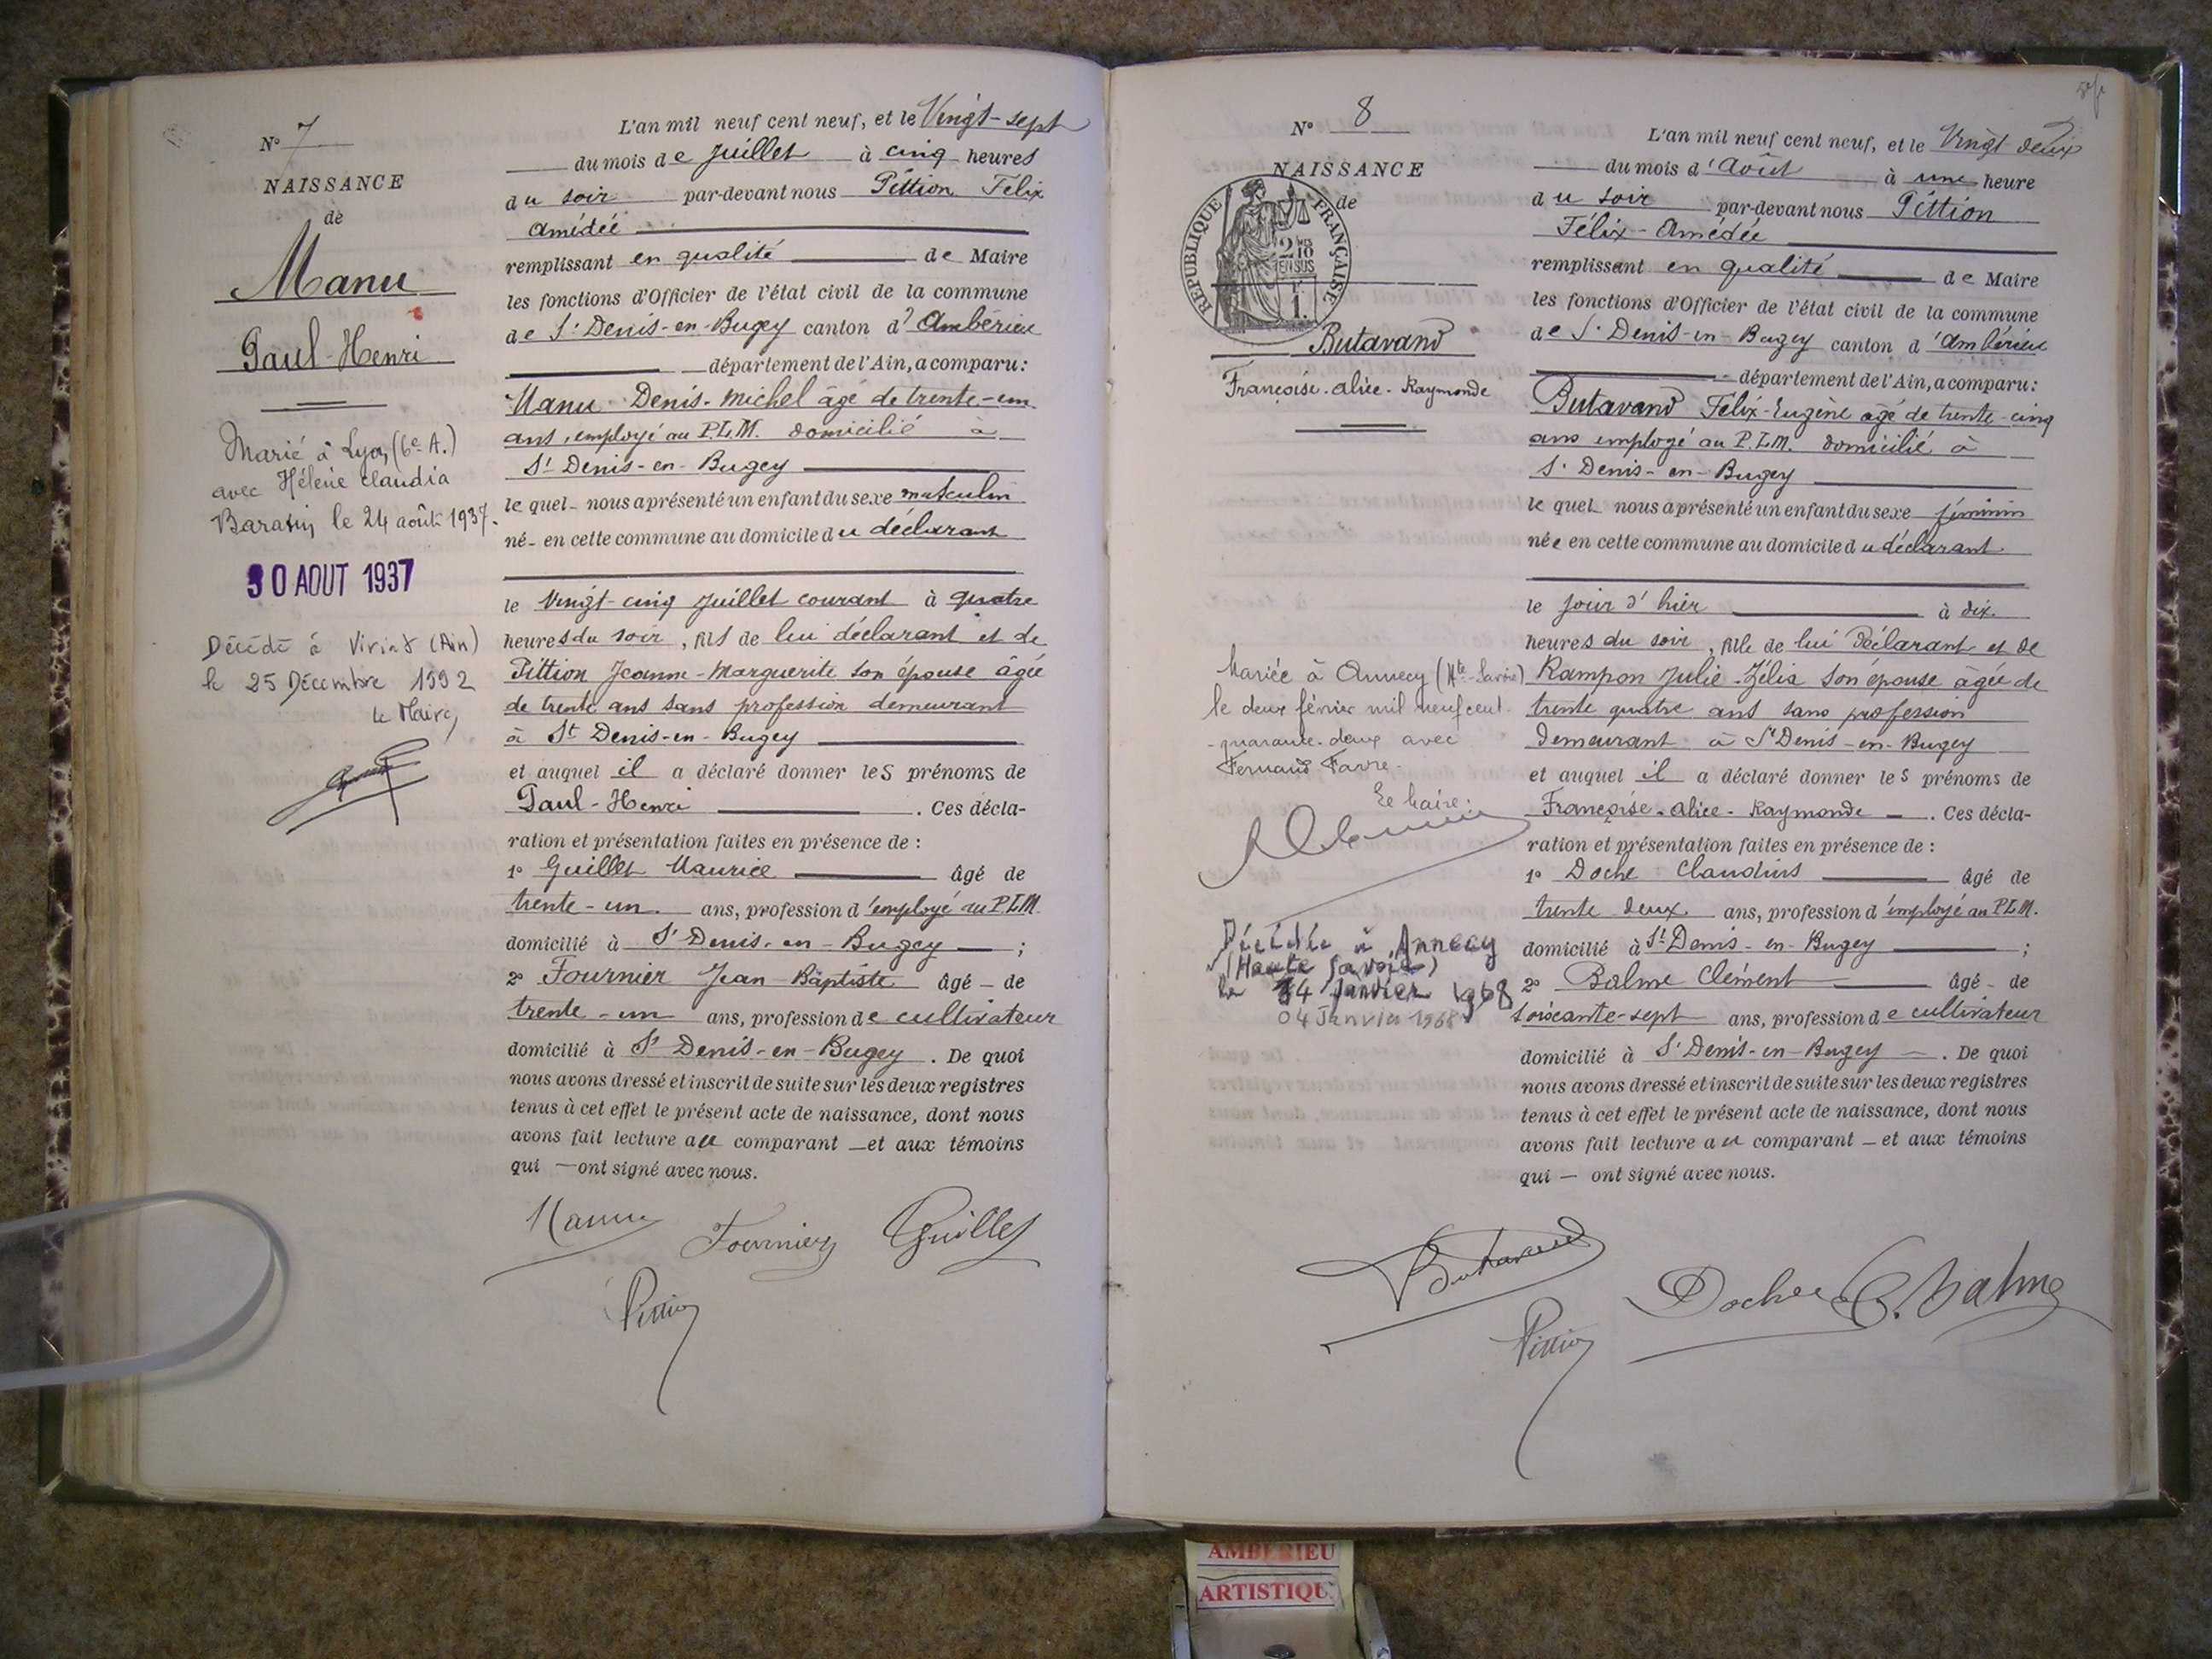 N° 7
NAISSANCE
de
Manu
Paul-Henri
Marié à Lyon (6e A.)
avec Hélène Claudia
le 24 août 1937.
30 AOUT 1937
Décédé à Viriat (Ain)
le 25 Décembre 1992
Le Maire,
L'an mil neuf cent neuf, et le Vingt-sept
du mois de Juillet à cinq heures
du soir par-devant nous Pittion Félix
Amédée
remplissant en qualité de Maire
les fonctions d'Officier de l'état civil de la commune
de St Denis-en-Bugey canton d'Ambérieu
département de l'Ain, a comparu:
Manu Denis-Michel âgé de trente-un
ans, employé au P.L.M. domicilié à
St Denis-en-Bugey
lequel nous a présenté un enfant du sexe masculin
né en cette commune au domicile du déclarant
le Vingt-cinq Juillet courant à quatre
heures du soir, fils de lui déclarant et de
Pittion Jeanne-Marguerite son épouse âgée
de trente ans sans profession demeurant
à St Denis-en-Bugey
et auquel il a déclaré donner les prénoms de
Paul-Henri . Ces décla-
ration et présentation faites en présence de :
1° Guillet Maurice âgé de
trente-un ans, profession d'employé au P.L.M.
domicilié à St Denis-en-Bugey ;
2° Fournier Jean-Baptiste âgé de
trente-un ans, profession de cultivateur
domicilié à St Denis-en-Bugey . De quoi
nous avons dressé et inscrit de suite sur les deux registres
tenus à cet effet le présent acte de naissance, dont nous
avons fait lecture au comparant et aux témoins
qui ont signé avec nous.
Manu Fournier Guillet
Pittion
N° 8
NAISSANCE
de
RÉPUBLIQUE FRANÇAISE
Butavand
Françoise-Alice-Raymonde
Mariée à Annecy (Hte-Savoie)
le deux février mil neuf cent
-quarante-deux avec
Fernand Favre.
Le Maire:
Décédée à Annecy
(Haute Savoie)
le 4 Janvier 1968
04 Janvier 1968
L'an mil neuf cent neuf, et le Vingt deux
du mois d'Août à une heure
du soir par-devant nous Pittion
Félix-Amédée
remplissant en qualité de Maire
les fonctions d'Officier de l'état civil de la commune
de St Denis-en-Bugey canton d'Ambérieu
département de l'Ain, a comparu:
Butavand Félix-Eugène âgé de trente-cinq
ans employé au P.L.M. domicilié à
St Denis-en-Bugey
lequel nous a présenté un enfant du sexe féminin
née en cette commune au domicile du déclarant
le jour d'hier à dix
heures du soir, fille de lui déclarant et de
Rampon Julie-Zélia son épouse âgée de
trente quatre ans sans profession
demeurant à St Denis-en-Bugey
et auquel il a déclaré donner les prénoms de
Françoise-Alice-Raymonde . Ces décla-
ration et présentation faites en présence de :
1° Doche Claudius âgé de
trente deux ans, profession d'employé au P.L.M.
domicilié à St Denis-en-Bugey ;
2° Balme Clément âgé de
soixante-sept ans, profession de cultivateur
domicilié à St Denis-en-Bugey . De quoi
nous avons dressé et inscrit de suite sur les deux registres
tenus à cet effet le présent acte de naissance, dont nous
avons fait lecture au comparant et aux témoins
qui ont signé avec nous.
Butavand
Doche C. Balme
Pittion
AMBERIEU
ARTISTIQU